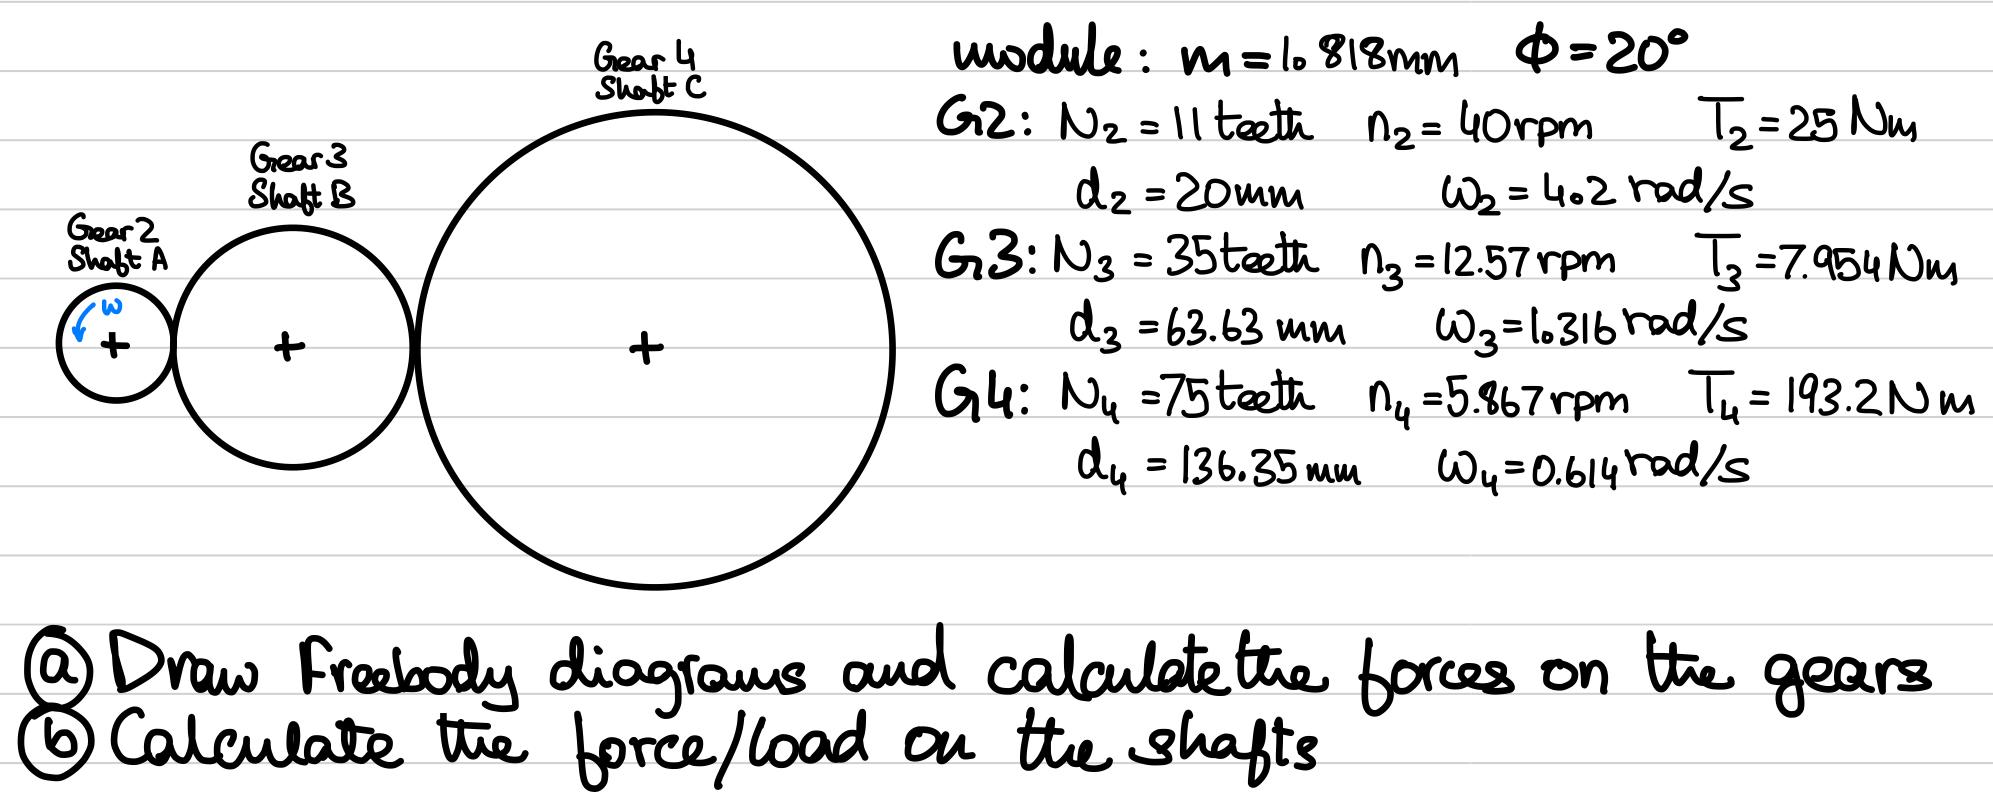 Gear 4
Shaft C
Gear 3
Shaft B
Gear 2
Shaft A
ω
module: m = 1.818mm Φ = 20°
G2: N₂ = 11 teeth n₂ = 40rpm T₂ = 25 Nm
d₂ = 20mm ω₂ = 4.2 rad/s
G3: N₃ = 35 teeth n₃ = 12.57 rpm T₃ = 7.954 Nm
d₃ = 63.63 mm ω₃ = 1.316 rad/s
G4: N₄ = 75 teeth n₄ = 5.867 rpm T₄ = 193.2 Nm
d₄ = 136.35 mm ω₄ = 0.614 rad/s
ⓐ Draw Freebody diagrams and calculate the forces on the gears
ⓑ Calculate the force/load on the shafts